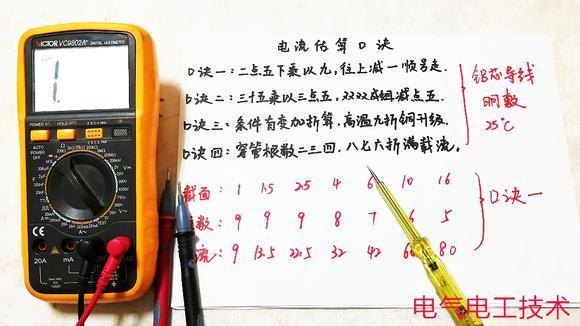 VICTOR VC9802A+ DIGITAL MULTIMETER
1.
POWER
HOLD
20A
mA
COM
CE
电流估算口诀
口诀一：二点五下乘以九，往上减一顺号走.
口诀二：三十五乘以三点五，双双成组减点五.
口诀三：条件有变加折算，高温九折铜升级.
口诀四：穿管根数二三四，八七六折满载流。
铝芯导线
明敷
25℃
截面：1 1.5 2.5 4 6 10 16
数：9 9 9 8 7 6 5
流：9 13.5 22.5 32 42 60 80
口诀一
电气电工技术